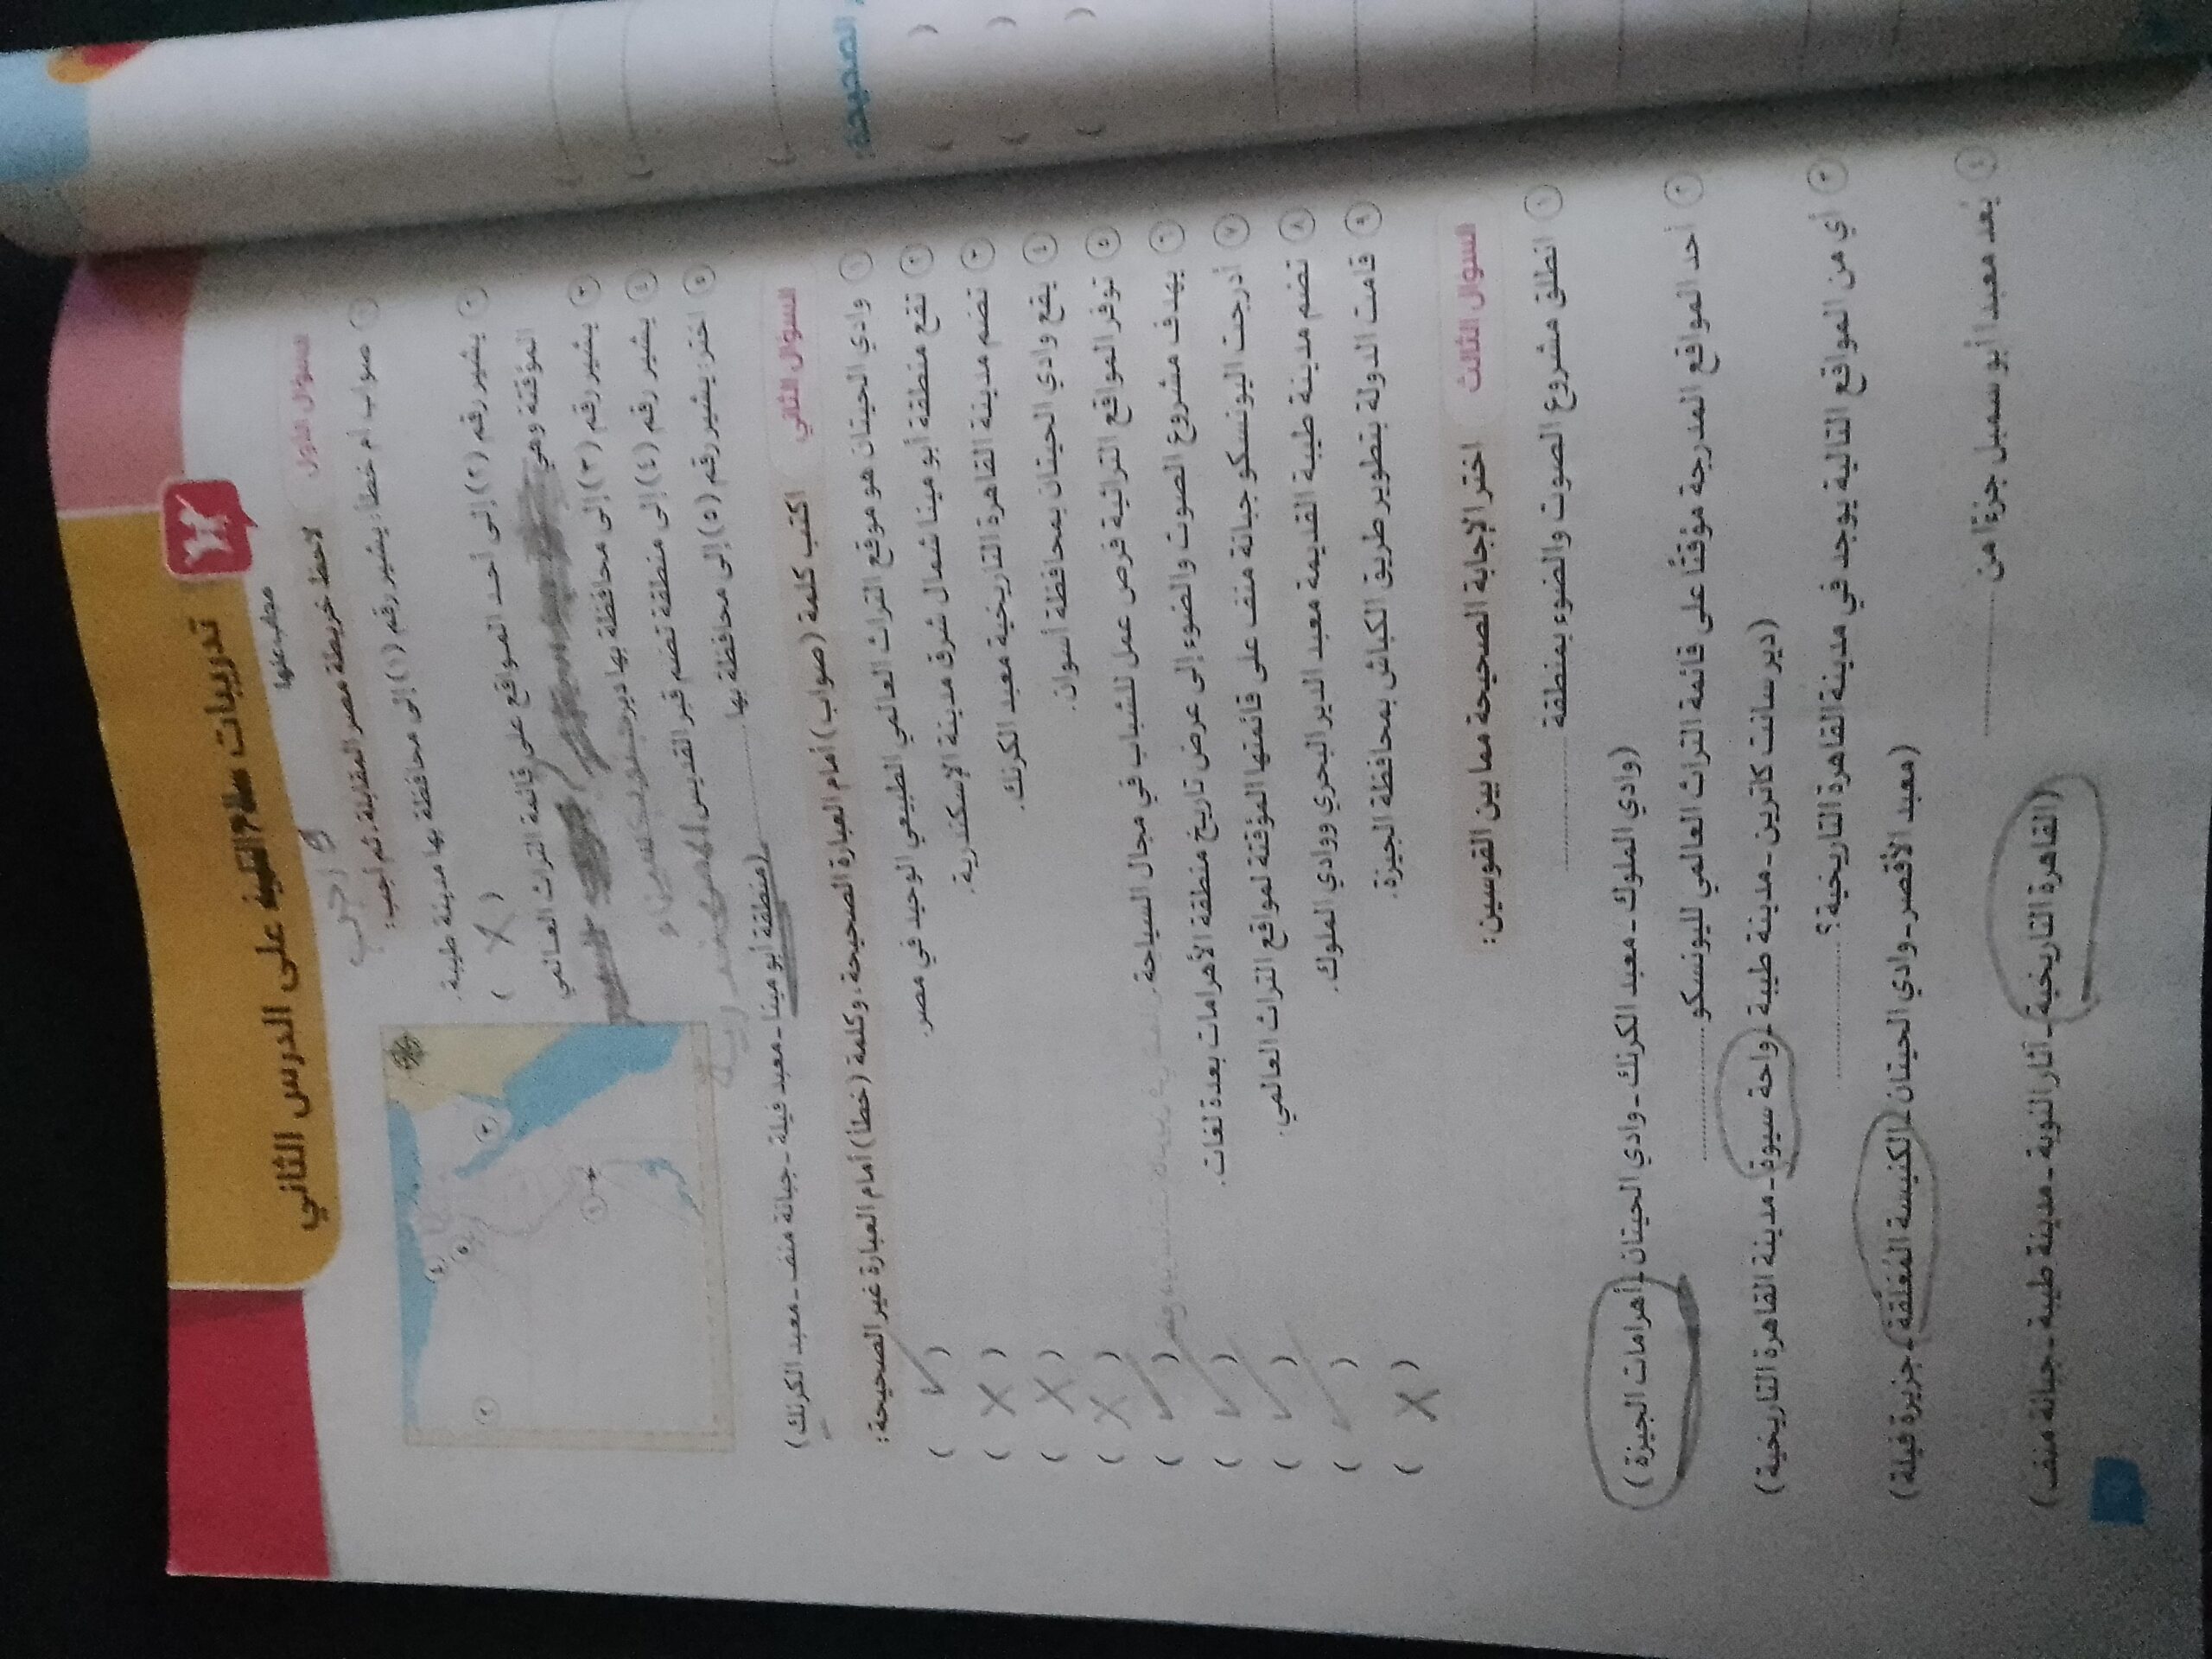 تدريبات سلاح التلميذ على الدرس الثاني
مجاب عنها
السؤال الأول
لاحظ خريطة مصر المقابلة، ثم أجب:
١ صواب أم خطأ: يشير رقم (١) إلى محافظة بها مدينة طيبة.
( X )
٢ يشير رقم (٢) إلى أحد المواقع على قائمة التراث العالمي
المؤقتة وهي
٣ يشير رقم (٣) إلى محافظة بها دير
٤ يشير رقم (٤) إلى منطقة تضم قبر القديس
٥ اختر: يشير رقم (٥) إلى محافظة بها
(منطقة أبو مينا - معبد فيلة - جبانة منف - معبد الكرنك)
السؤال الثاني
اكتب كلمة (صواب) أمام العبارة الصحيحة، وكلمة (خطأ) أمام العبارة غير الصحيحة:
١ وادي الحيتان هو موقع التراث العالمي الطبيعي الوحيد في مصر. ( ✓ )
٢ تقع منطقة أبو مينا شمال شرق مدينة الإسكندرية. ( X )
٣ تضم مدينة القاهرة التاريخية معبد الكرنك. ( X )
٤ يقع وادي الحيتان بمحافظة أسوان. ( X )
٥ توفر المواقع التراثية فرص عمل للشباب في مجال السياحة. ( ✓ )
٦ يهدف مشروع الصوت والضوء إلى عرض تاريخ منطقة الأهرامات بعدة لغات. ( ✓ )
٧ أدرجت اليونسكو جبانة منف على قائمتها المؤقتة لمواقع التراث العالمي. ( ✓ )
٨ تضم مدينة طيبة القديمة معبد الدير البحري ووادي الملوك. ( ✓ )
٩ قامت الدولة بتطوير طريق الكباش بمحافظة الجيزة. ( X )
السؤال الثالث
اختر الإجابة الصحيحة مما بين القوسين:
١ انطلق مشروع الصوت والضوء بمنطقة
(وادي الملوك - معبد الكرنك - وادي الحيتان - أهرامات الجيزة)
٢ أحد المواقع المدرجة مؤقتًا على قائمة التراث العالمي لليونسكو
(دير سانت كاترين - مدينة طيبة - واحة سيوة - مدينة القاهرة التاريخية)
٣ أي من المواقع التالية يوجد في مدينة القاهرة التاريخية؟
(معبد الأقصر - وادي الحيتان - الكنيسة المُعلّقة - جزيرة فيلة)
٤ يُعد معبدا أبو سمبل جزءًا من
(القاهرة التاريخية - آثار النوبة - مدينة طيبة - جبانة منف)